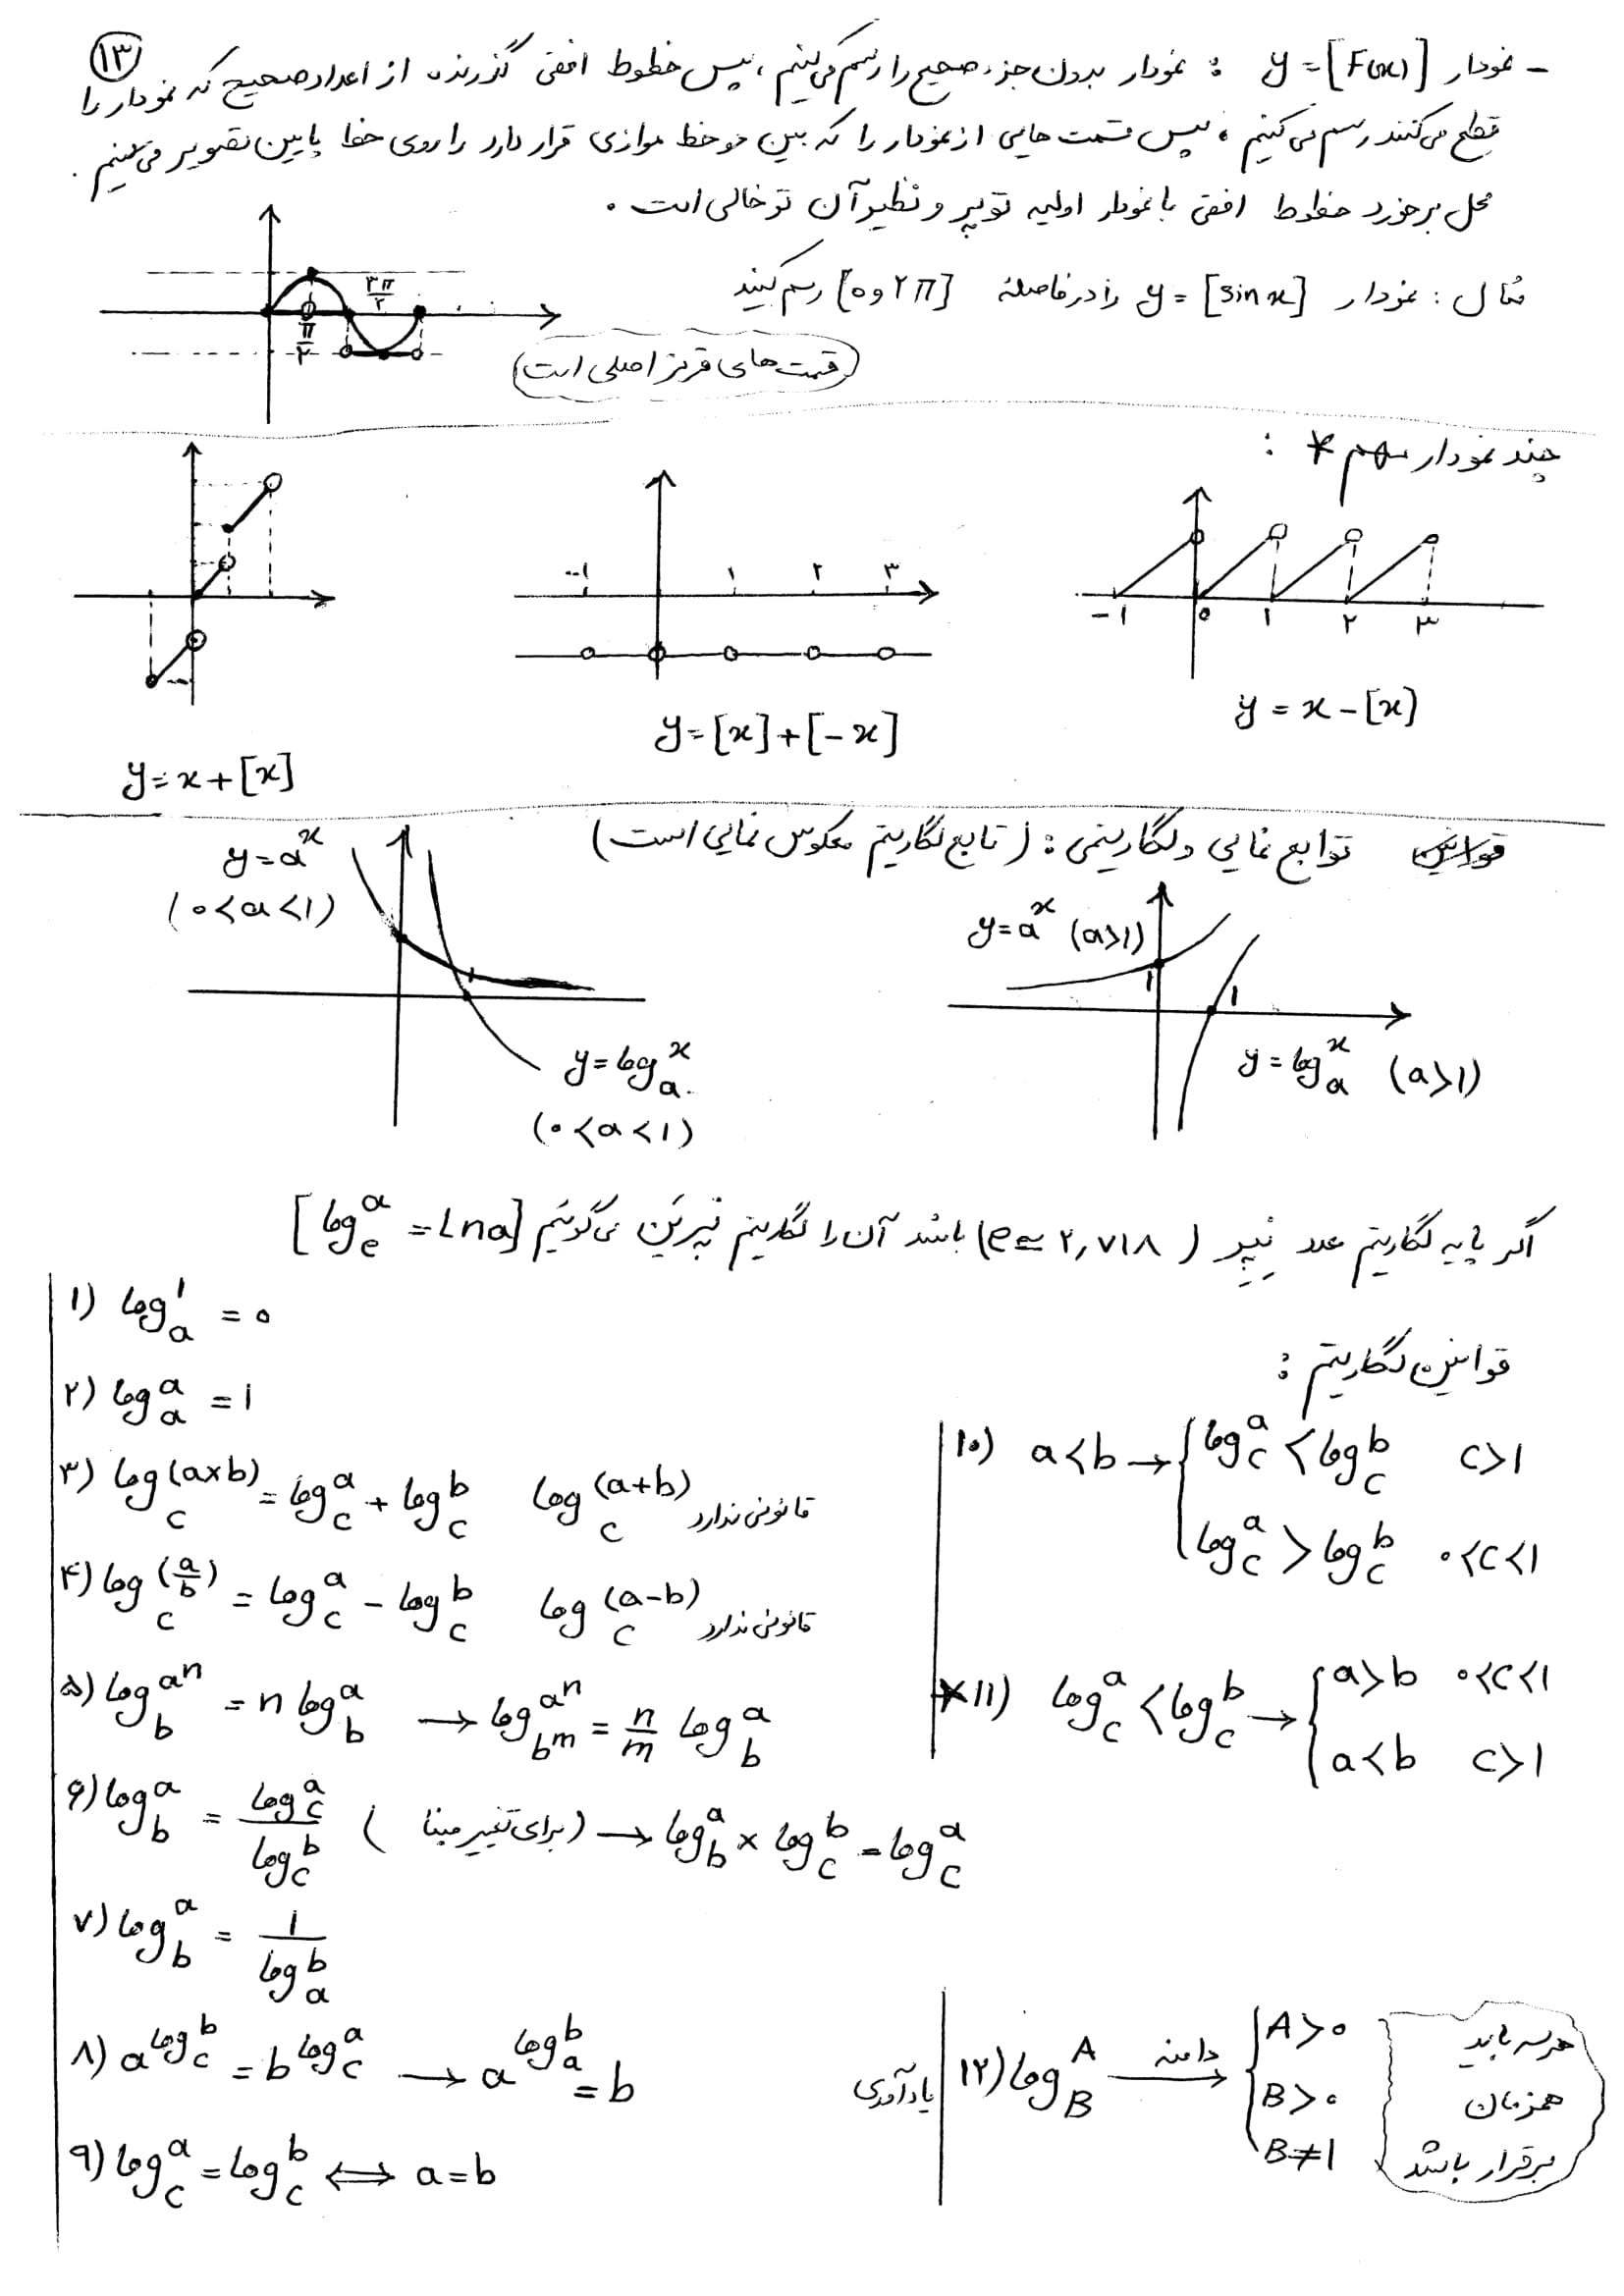 ۱۳
- نمودار y = [F(x)] : نمودار بدون جزء صحیح را رسم می‌کنیم، سپس خطوط افقی گذرنده از اعداد صحیح که نمودار را
قطع می‌کنند رسم می‌کنیم، سپس قسمت هایی از نمودار را که بین دو خط موازی قرار دارد را روی خط پایین تصویر می‌کنیم.
محل برخورد خطوط افقی با نمودار اولیه توپر و نظیر آن توخالی است.
مثال : نمودار y = [sin x] را در فاصله [0 و ۲π] رسم کنید
π/۲ ۳π/۲
(قسمت های قرمز اصلی است)
چند نمودار مهم * :
-۱ ۱ ۲ ۳
-۱ ۰ ۱ ۲ ۳
y = x - [x]
y = [x] + [-x]
y = x + [x]
توابع نمایی و لگاریتمی : (تابع لگاریتم معکوس نمایی است)
y = a^x
(0 < a < 1)
y = a^x (a > 1)
۱ ۱ ۱
y = log_a^x (a > 1)
y = log_a^x
(0 < a < 1)
اگر پایه لگاریتم عدد نپر (e ≃ ۲,۷۱۸) باشد آن را لگاریتم نپرین می‌گوئیم [log_e^a = Lna]
قوانین لگاریتم :
۱) log_a^1 = 0
۲) log_a^a = 1
۳) log_c^(a×b) = log_c^a + log_c^b log_c^(a+b) قانونی ندارد
۴) log_c^(a/b) = log_c^a - log_c^b log_c^(a-b) قانونی ندارد
۵) log_b^a^n = n log_b^a → log_b^m^a^n = n/m log_b^a
۶) log_b^a = log_c^a / log_c^b (برای تغییر مبنا) → log_b^a × log_c^b = log_c^a
۷) log_b^a = 1 / log_a^b
۸) a^log_c^b = b^log_c^a → a^log_a^b = b
۹) log_c^a = log_c^b ⟺ a = b
۱۰) a < b → { log_c^a < log_c^b c > 1
log_c^a > log_c^b 0 < c < 1
* ۱۱) log_c^a < log_c^b → { a > b 0 < c < 1
a < b c > 1
یادآوری
۱۲) log_B^A دامنه → { A > 0
B > 0
B ≠ 1
هر سه باید
همزمان
برقرار باشد